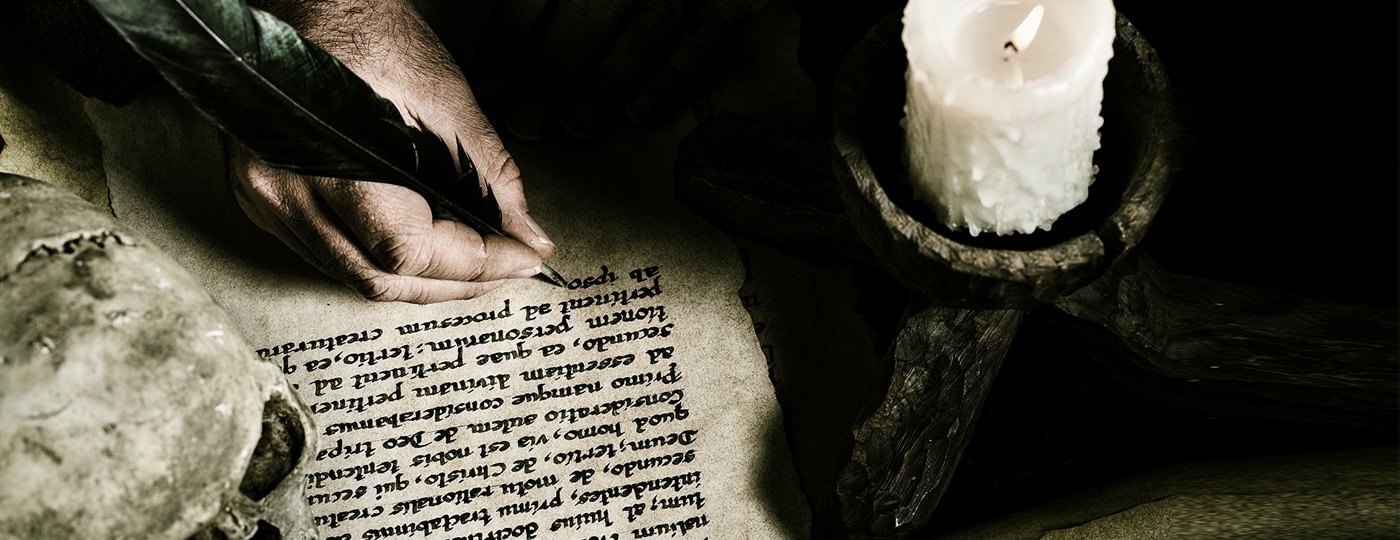 nalium
tum; al huius doctri
intendentes, primu tractabimus
secundo, de motu rationalis creatu
Deum; tertio, de Christo, qui secu
quod homo, via est nobis tentendi
Consideratio autem de Deo tripa
Primo namque considerabamus
ad essentiam divinam pertinet
secundo, ea quae pertinent ad
tionem personarum: tertio, ea q
pertinent ad procesum creaturaru
ab ipso